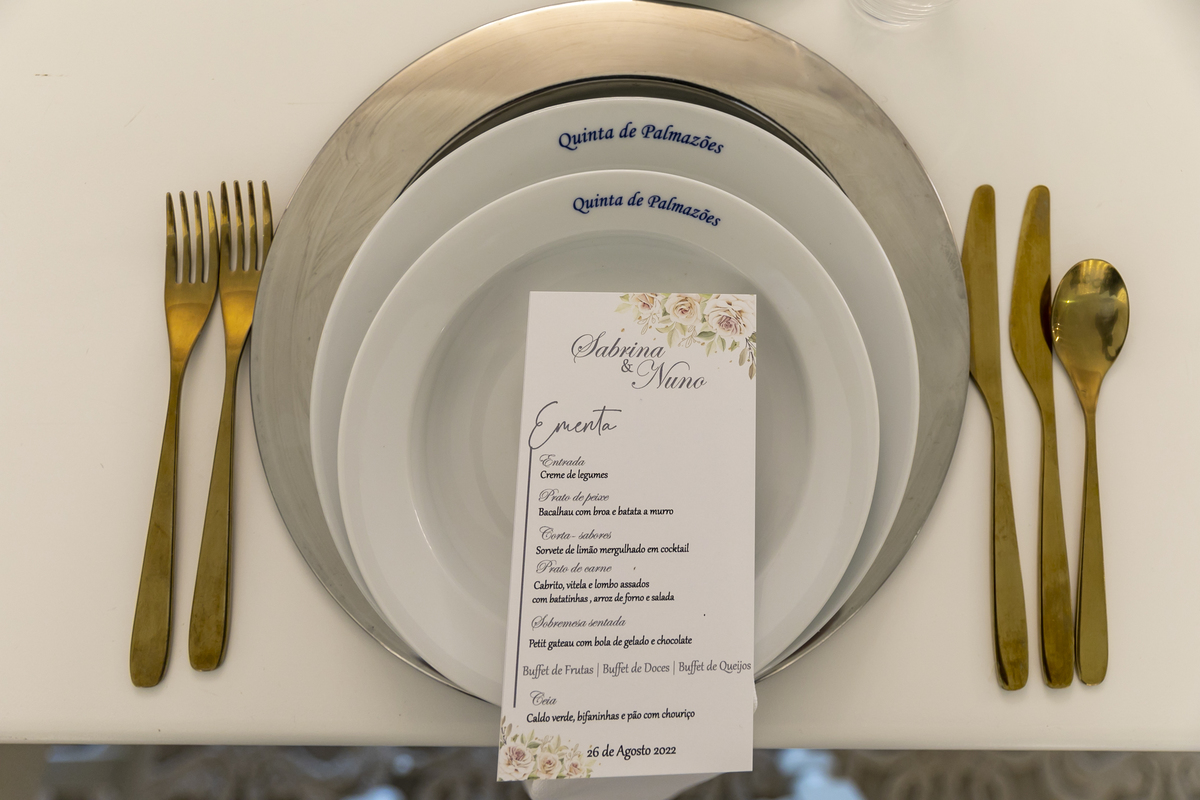 Quinta de Palmazões
Quinta de Palmazões
Sabrina
&
Nuno
Ementa
Entrada
Creme de legumes
Prato de peixe
Bacalhau com broa e batata a murro
Corta- sabores
Sorvete de limão mergulhado em cocktail
Prato de carne
Cabrito, vitela e lombo assados
com batatinhas , arroz de forno e salada
Sobremesa sentada
Petit gateau com bola de gelado e chocolate
Buffet de Frutas | Buffet de Doces | Buffet de Queijos
Ceia
Caldo verde, bifaninhas e pão com chouriço
26 de Agosto 2022